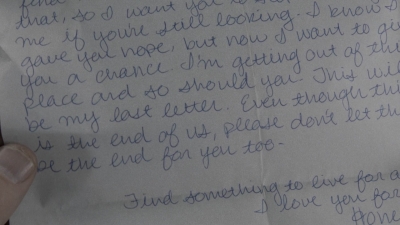 that, so I want you to
me if you're still looking. I know I
gave you hope, but now I want to give
you a chance I'm getting out of this
place and so should you. This will
be my last letter. Even though this
is the end of us, please don't let this
be the end for you too.
Find something to live for
I love you for
Hone